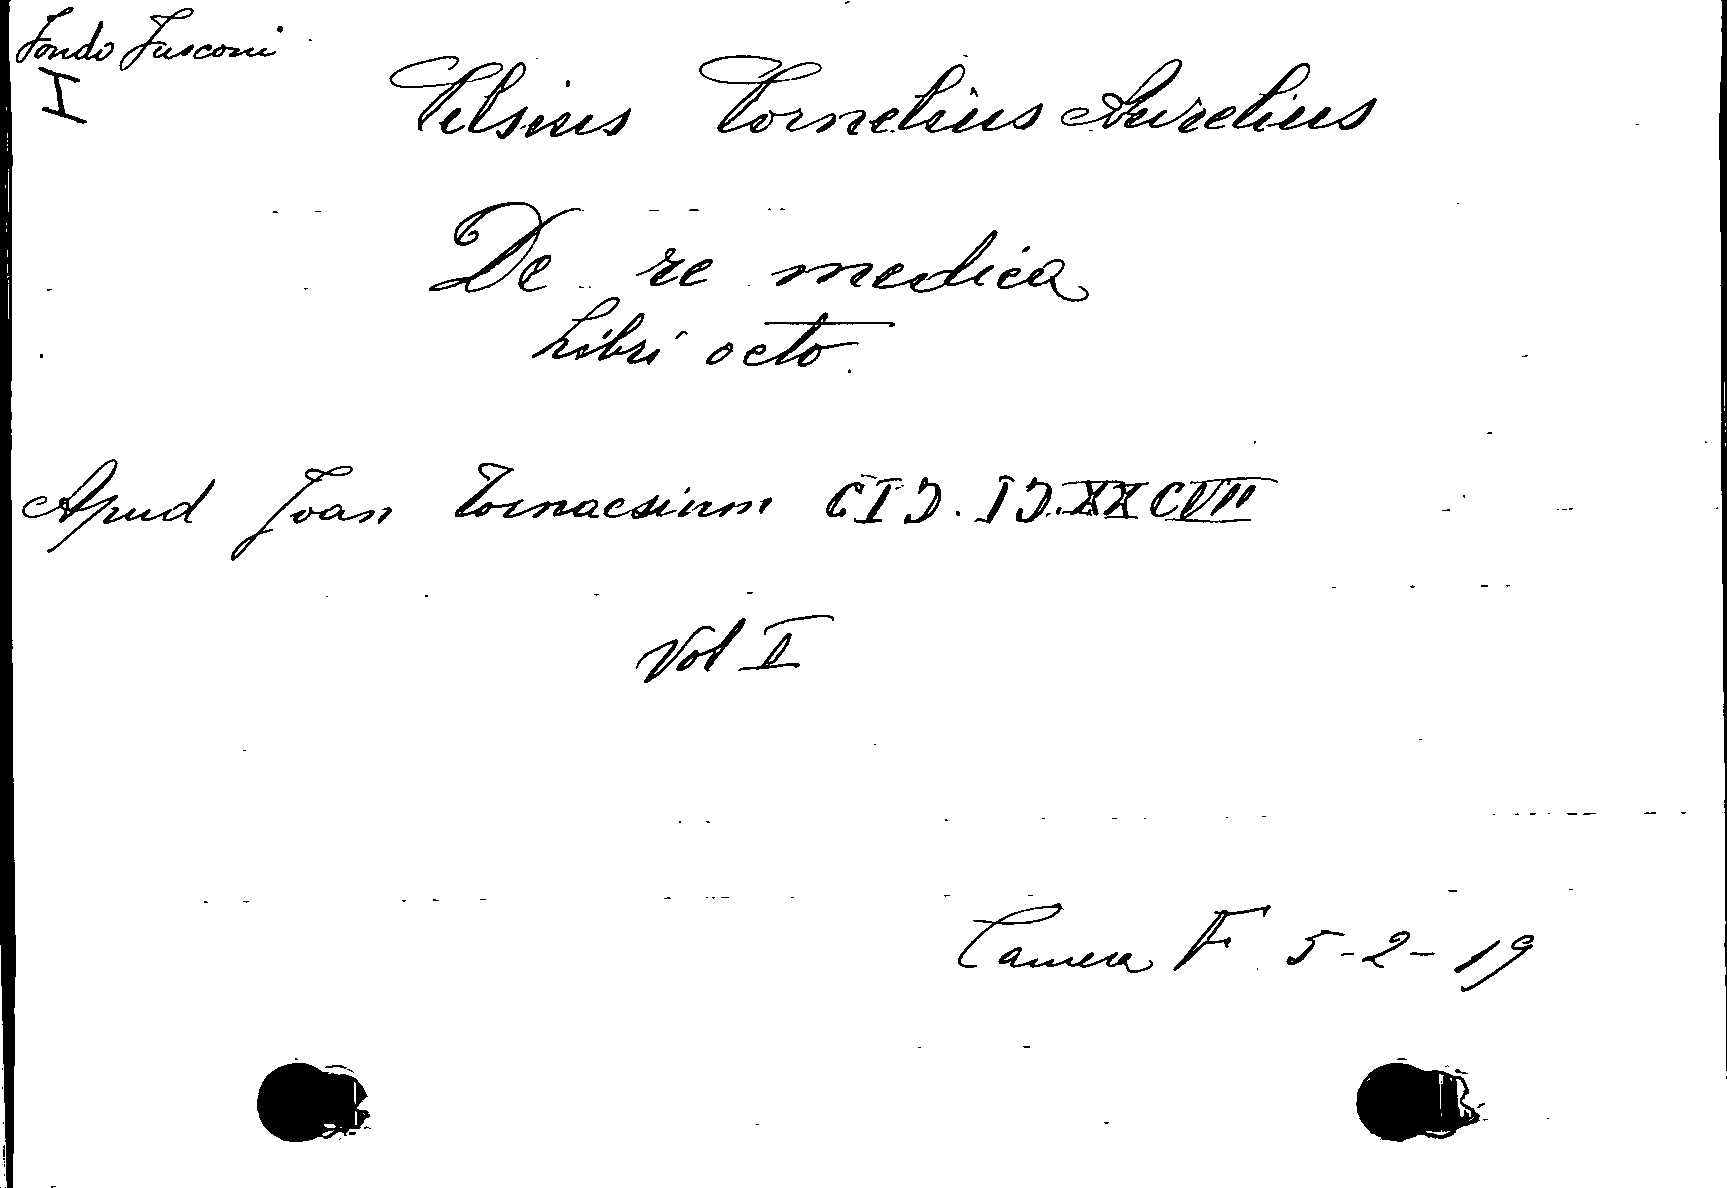 Fondo Fusconi
I
Celsius Cornelius Aurelius
De re medica
Libri octo.
Apud Joan Tornaesium CIƆ.IƆ.XXCVII
Vol I
Camera F 5-2-19